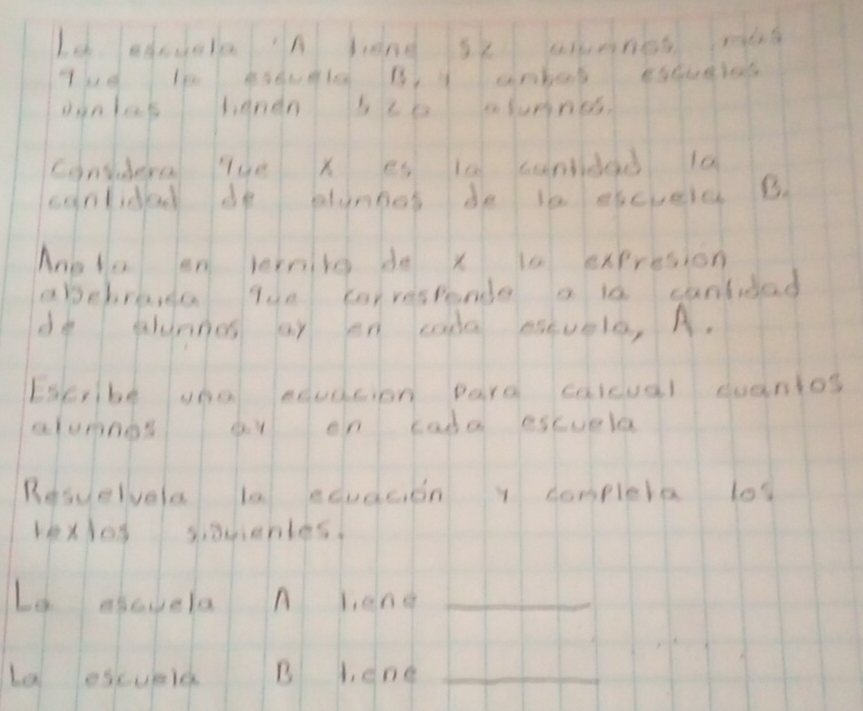 La escuela A tiene 52 alumnos más
que la escuela B, y ambas escuelas
juntas tienen 520 alumnos.
considera que x es la cantidad la
cantidad de alumnos de la escuela B.
Anota en termito de x la expresión
algebraica que corresponde a la cantidad
de alumnos ay en cada escuela, A.
Escribe una ecuacion para calcual cuantos
alumnos ay en cada escuela
Resuelvela la ecuación y completa los
textos siguientes.
La escuela A tiene
La escuela B tiene